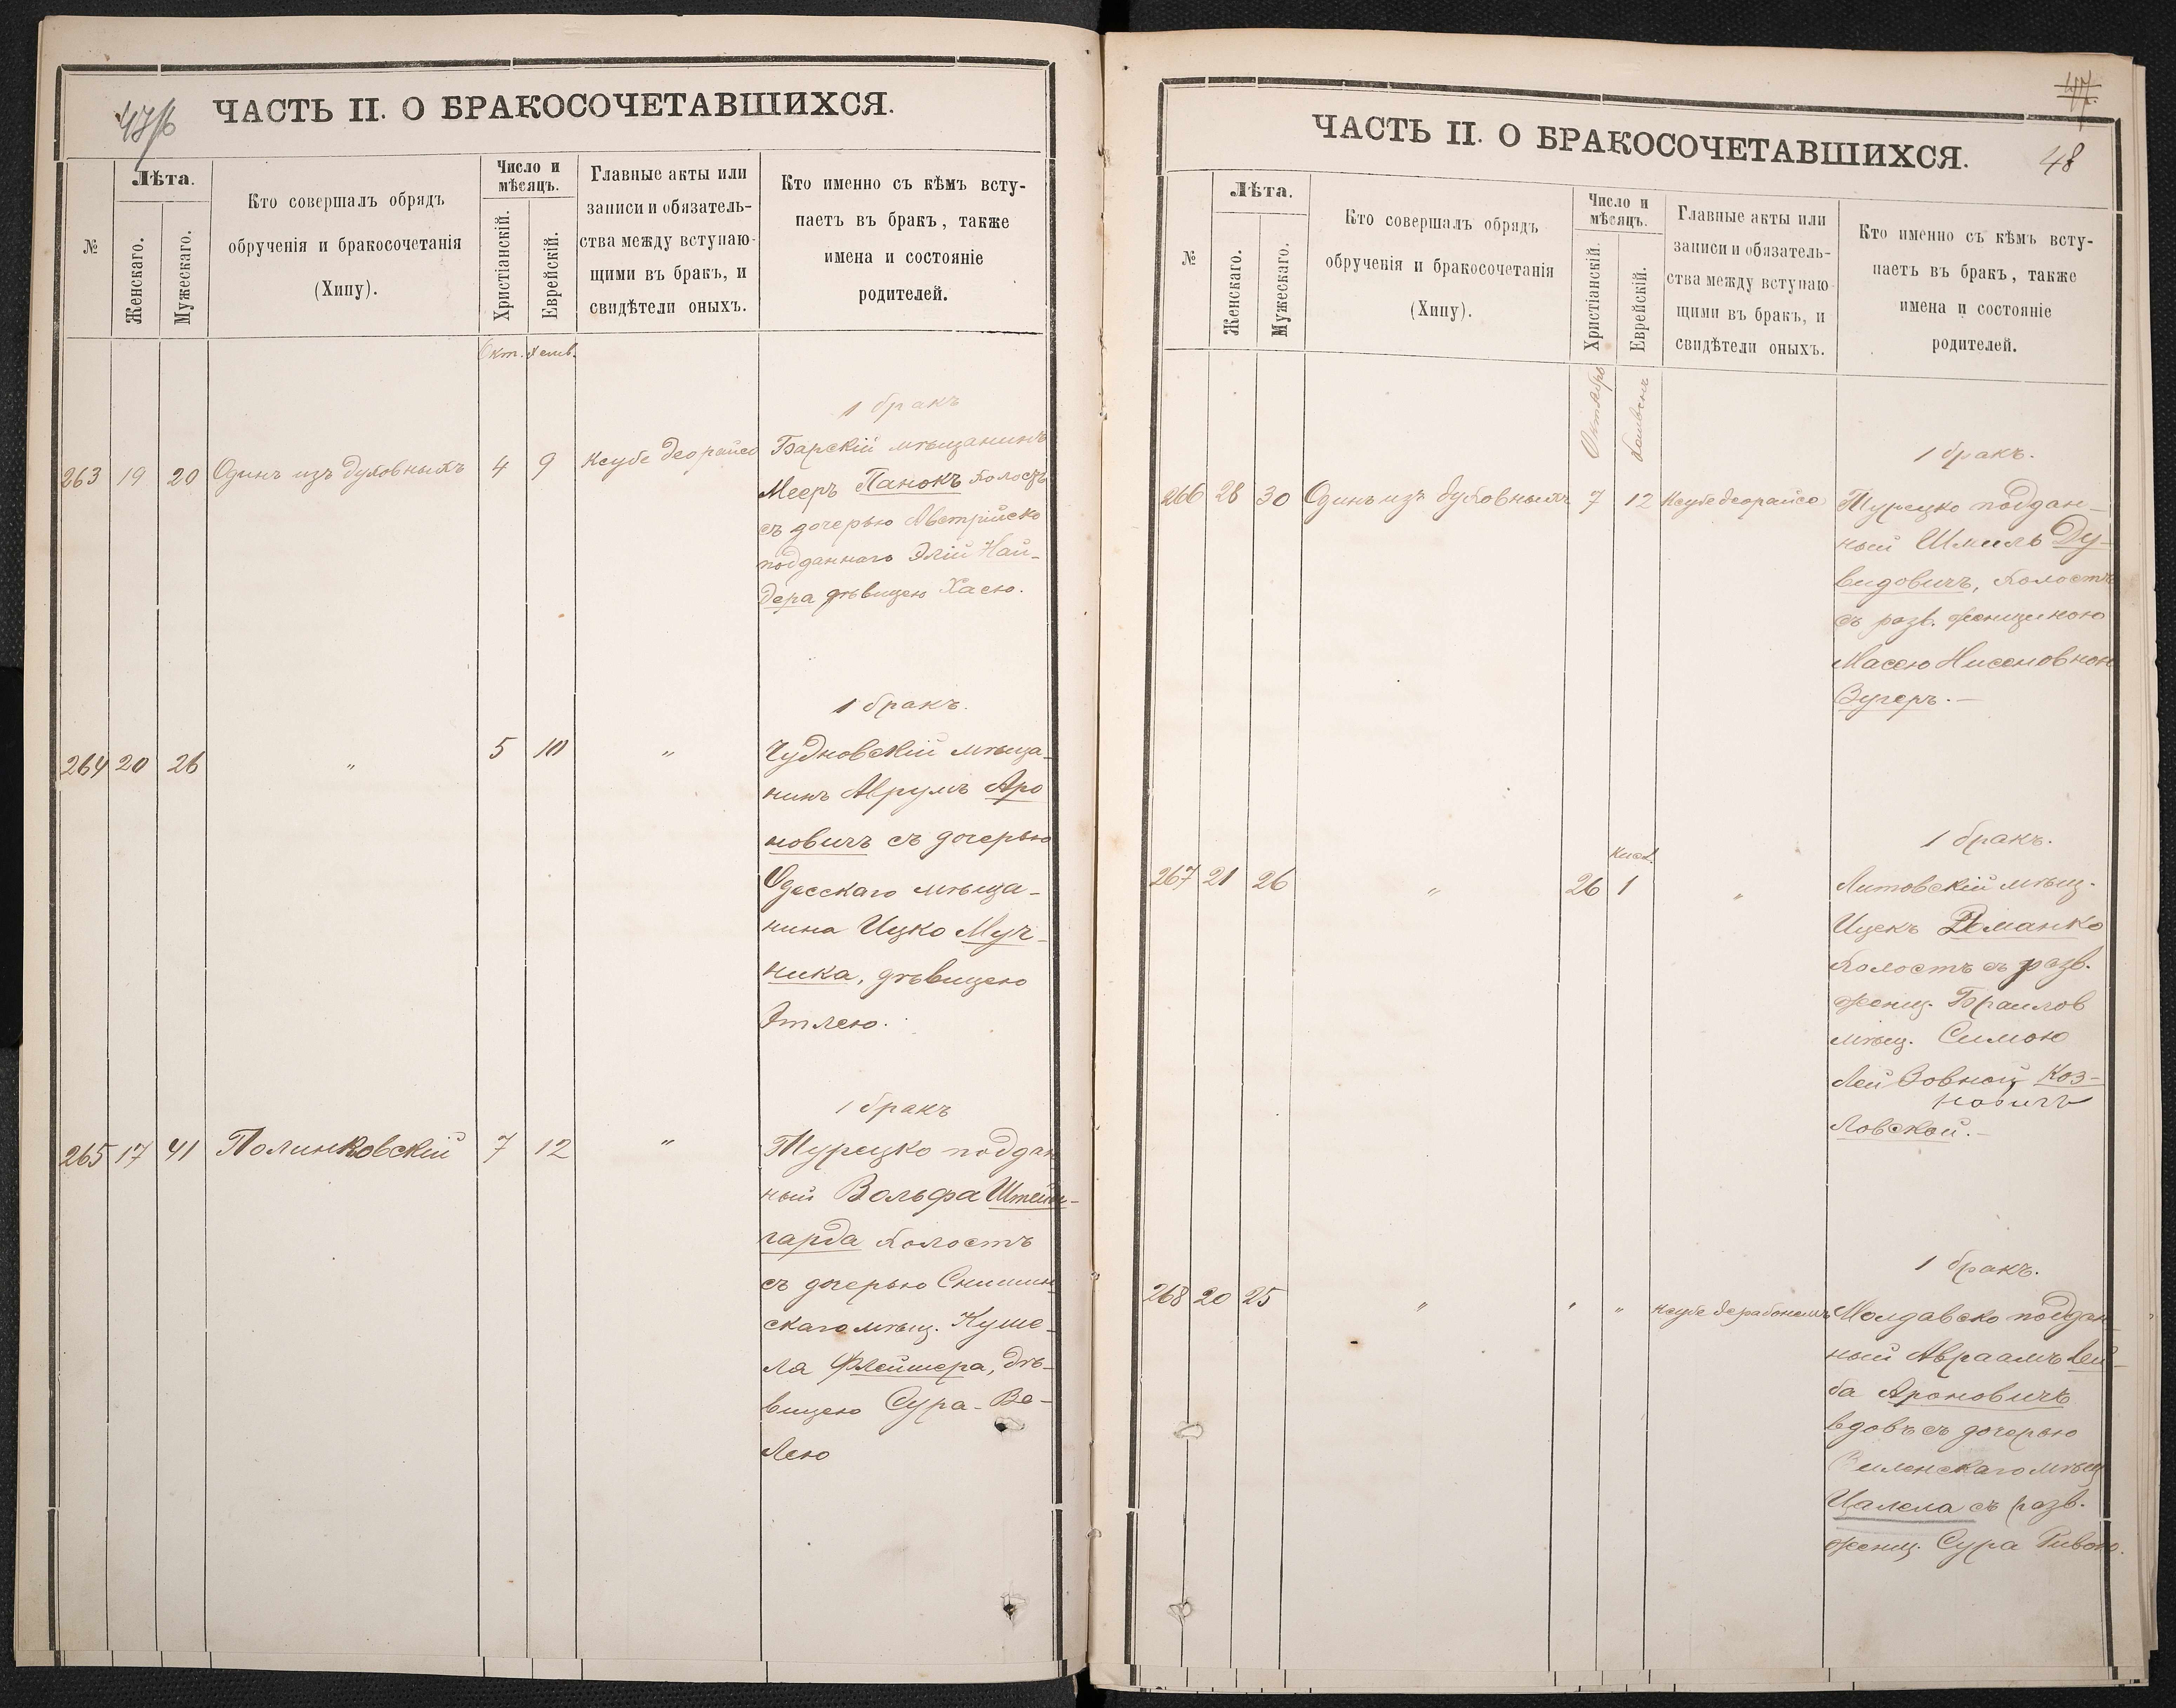 ЧАСТЬ II. О БРАКОСОЧЕТАВШИХСЯ.
№
Лѣта.
Женскаго.
Мужескаго.
Кто совершалъ обрядъ
обрученія и бракосочетанія
(Хипу).
Число и
мѣсяцъ.
Христіанскій.
Еврейскій.
Главные акты или
записи и обязатель-
ства между вступаю-
щими въ бракъ, и
свидѣтели оныхъ.
Кто именно съ кѣмъ всту-
паетъ въ бракъ, также
имена и состояніе
родителей.
Окт.
1 бракъ
263 19 20 Одинъ изъ духовныхъ 4 9 Ксубе деорайсо Барскій мѣщанинъ
Мееръ Панокъ холостъ
съ дочерью Австрійско
подданнаго Элій Най-
дера дѣвицею Хасю.
1 бракъ.
264 20 26 " 5 10 " Чудновскій мѣща-
нинъ Аврумъ Аро
новичъ съ дочерью
Одесскаго мѣща-
нина Ицко Муч-
ника, дѣвицею
Этлею.
1 бракъ
265 17 41 Полинковскій 7 12 " Турецко поддан
ный Вольфа Штейн-
гарда холостъ
съ дочерью
скаго мѣщ. Куше-
ла Флейшера, дѣ-
вицею Сура-Ве-
лею
ЧАСТЬ II. О БРАКОСОЧЕТАВШИХСЯ.
47.
48
№
Лѣта.
Женскаго.
Мужескаго.
Кто совершалъ обрядъ
обрученія и бракосочетанія
(Хипу).
Число и
мѣсяцъ.
Христіанскій.
Еврейскій.
Главные акты или
записи и обязатель-
ства между вступаю-
щими въ бракъ, и
свидѣтели оныхъ.
Кто именно съ кѣмъ всту-
паетъ въ бракъ, также
имена и состояніе
родителей.
Октябрь
1 бракъ.
266 28 30 Одинъ изъ духовныхъ 7 12 Ксубе деорайсо Турецко поддан-
ный Шмиль Ду-
видовичъ, холостъ
съ разв. женщиною
Масею Нисеновною
Зугеръ.-
1 бракъ.
Кисл.
267 21 26 " 26 1 " Литовскій мѣщ.
Ицекъ Романко
холостъ съ разв.
женщ. Браилов
мѣщ. Симою
Лейзовной Коз-
ловской.-
1 бракъ.
268 20 25 " " " Ксубе дерабонемъ Молдавско поддан
ный Авраамъ Лей-
ба Ароновичъ
вдовъ съ дочерью
Виленскаго мѣщ
Цалела съ разв.
женщ. Сура Ривою.